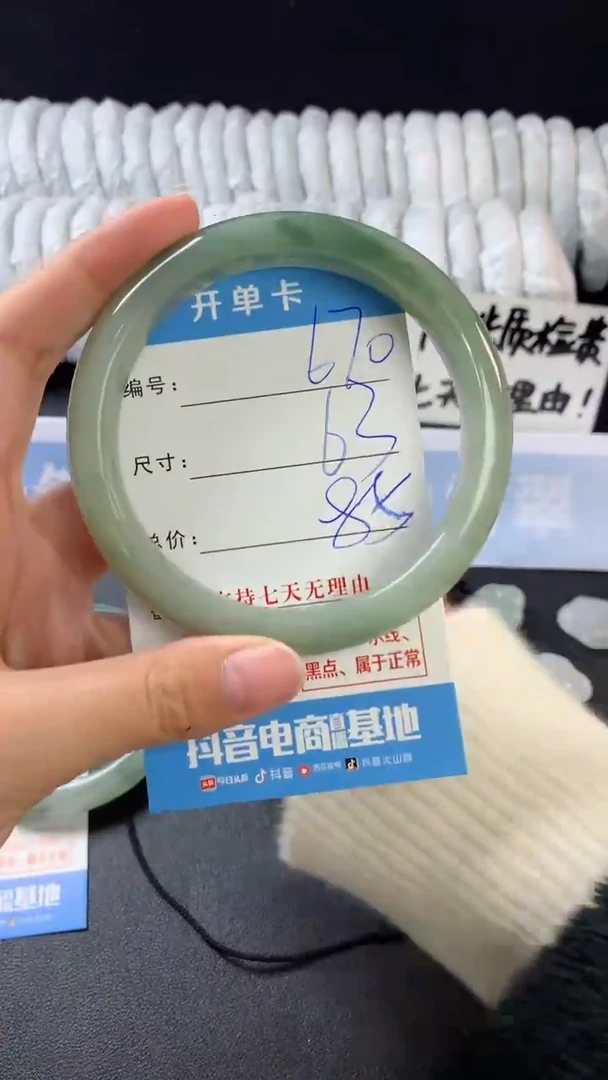 开单卡
编号: 670
尺寸: 63
总价:
支持七天无理由
水线、
黑点、属于正常
抖音电商直播基地
今日头条 抖音 西瓜视频 抖音火山版
质检费
七天 理由!
基地